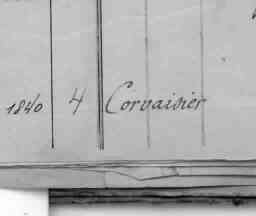 1840 4 Corvaisier